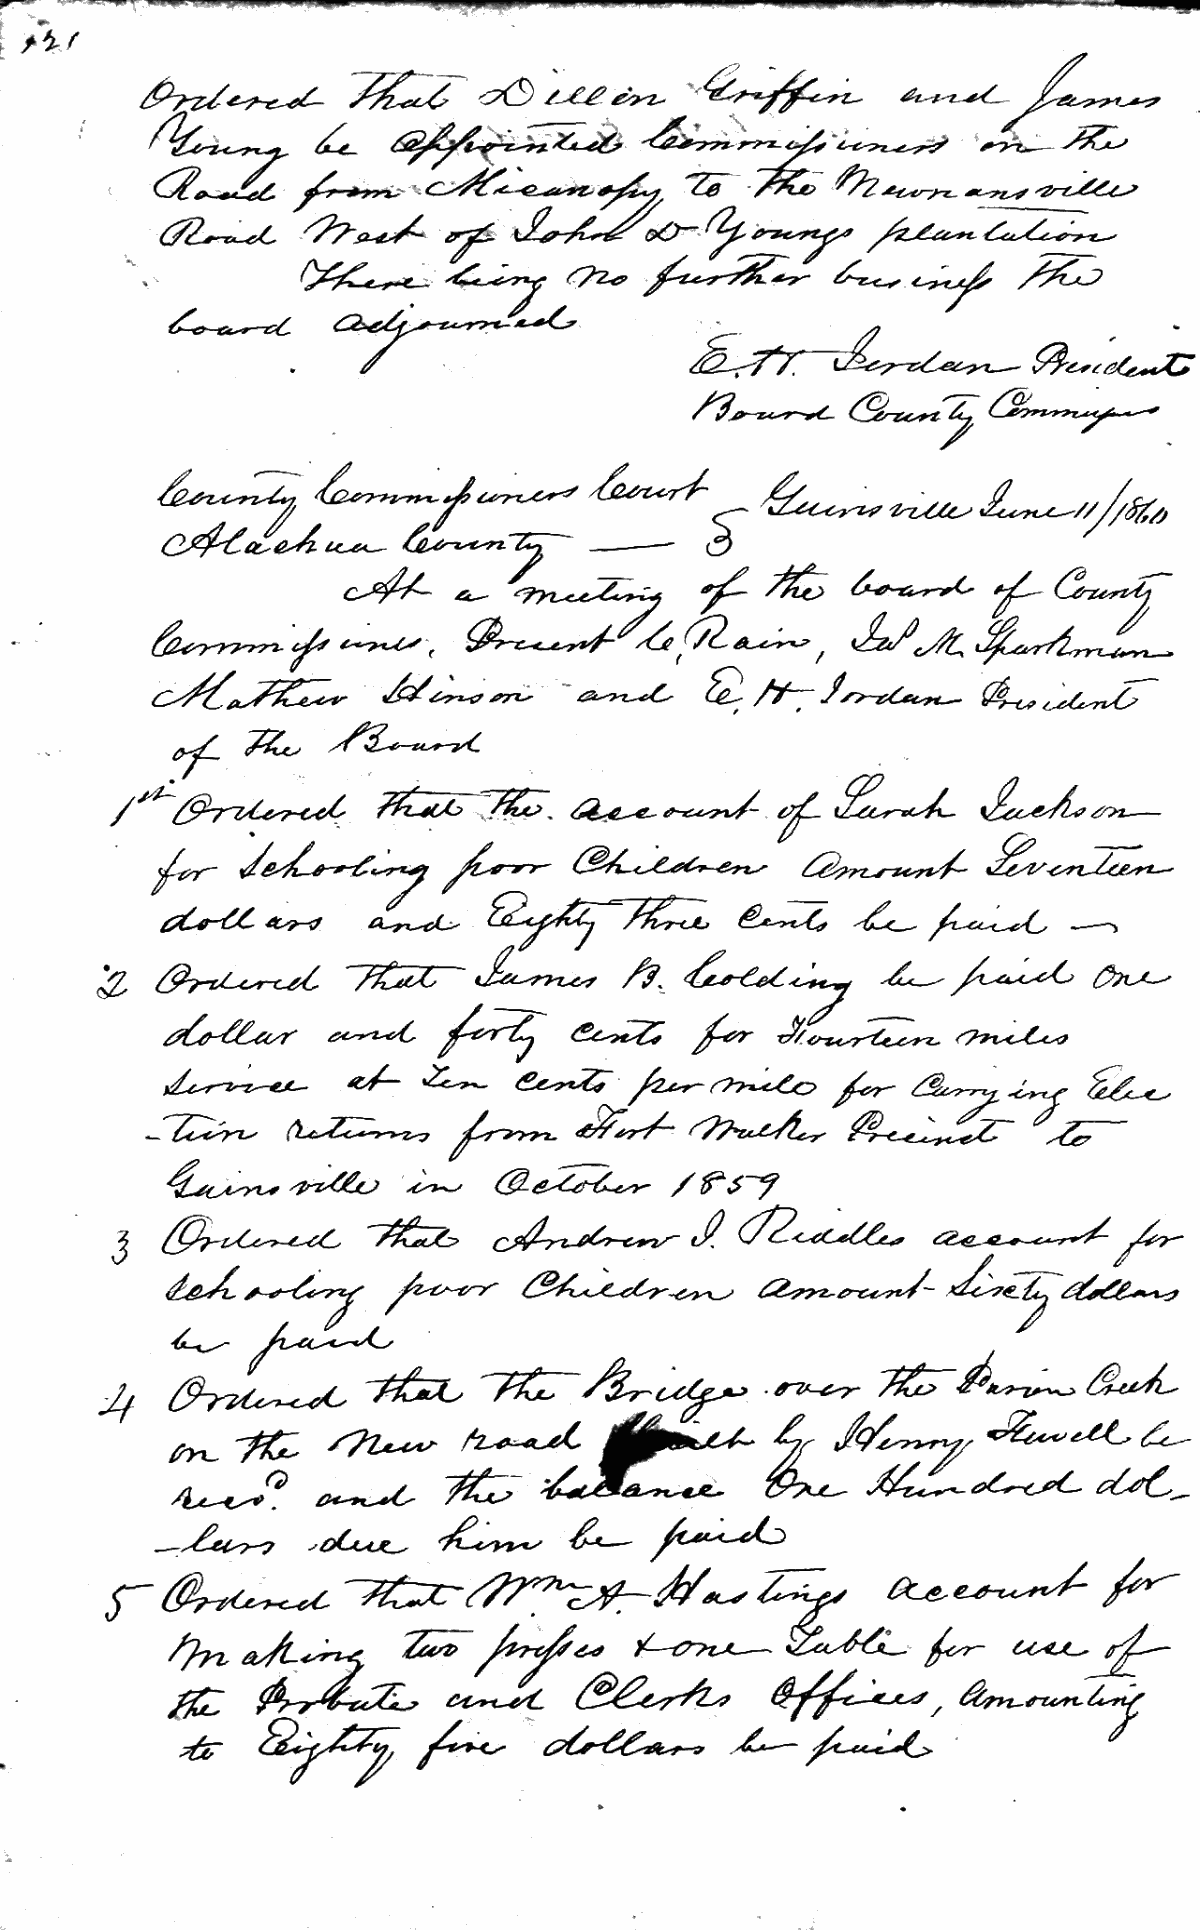 121
Ordered that Dillen Griffin and James
Young be appointed Commissioners on the
Road from Micanopy to the Newnansville
Road West of John D Youngs plantation
There being no further business the
board adjourned
E. H. Jordan President
Board County Commissrs
County Commissioners Court
Gainsville June 11/1860
Alachua County —
At a meeting of the board of County
Commissiners, Present C, Rain, Jas M. Sparkman
Mathew Hinson and E. H. Jordan President
of the Board
1st Ordered that the account of Sarah Jackson
for Schooling poor Children Amount Seventeen
dollars and Eighty three Cents be paid —
2 Ordered that James B. Colding be paid One
dollar and forty Cents for Fourteen miles
Service at Ten Cents per mile for Carrying Elec
-tion returns from Fort Walker Precinct to
Gainsville in October 1859
3 Ordered that Andrew J. Riddles account for
Schooling poor Children Amount Sixty dollars
be paid
4 Ordered that the Bridge over the Creek
on the New road built by Henry be
recd. and the balance One Hundred dol-
-lars due him be paid
5 Ordered that Wm A. Hastings account for
Making two presses & one Table for use of
the Probate and Clerks Offices, Amounting
to Eighty five dollars be paid